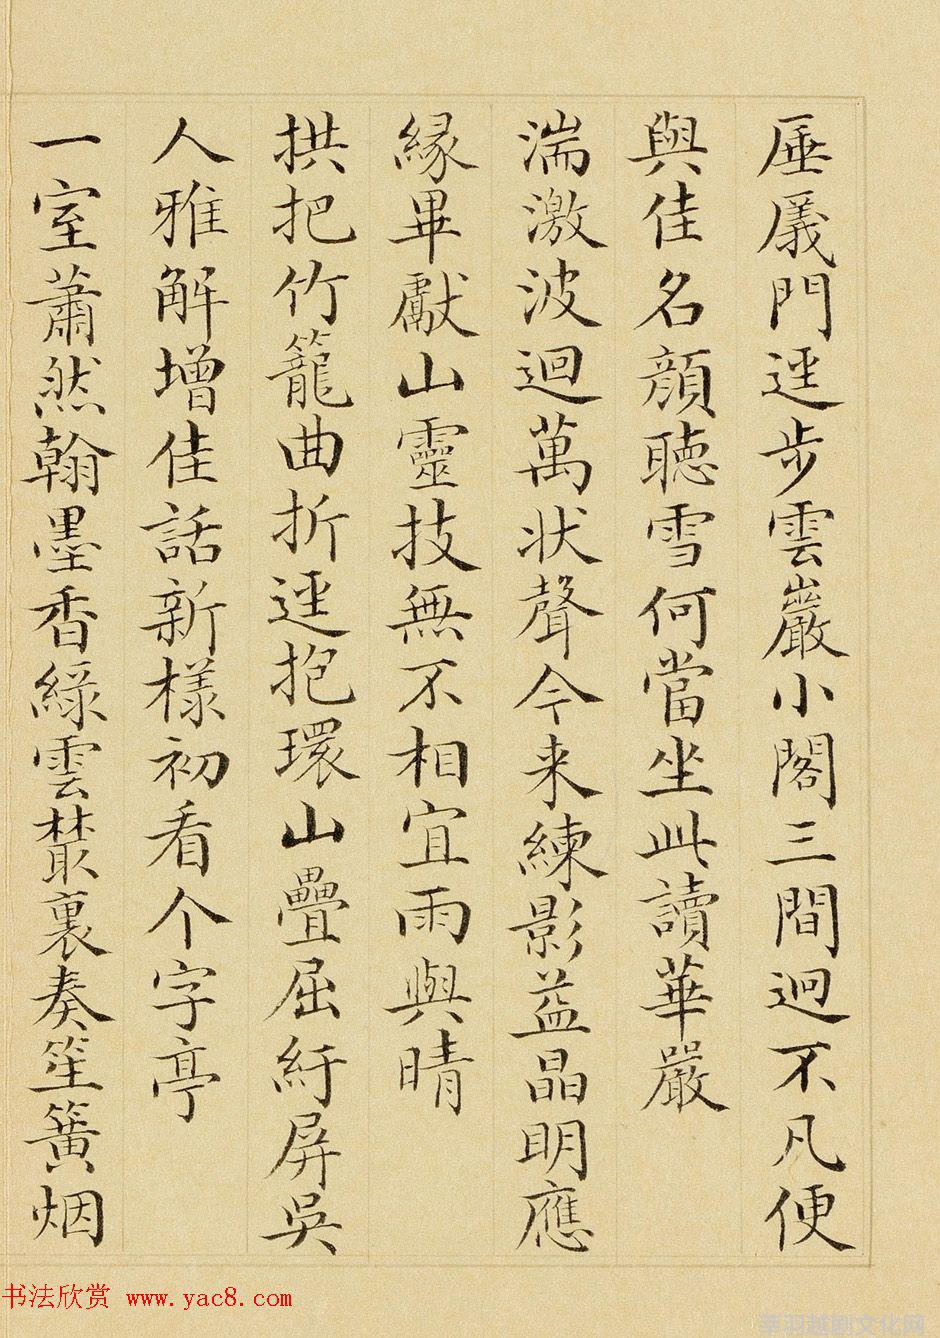 厜㕒門逕步雲巖小閣三間迥不凡便
與佳名顏聽雪何當坐此讀華嚴
湍激波迴萬狀聲今来練影益晶明應
緣畢獻山靈技無不相宜雨與晴
拱把竹籠曲折逕抱環山疊屈紆屏吳
人雅解增佳話新樣初看个字亭
一室蕭然翰墨香綠雲叢裏奏笙簧烟
书法欣赏 www.yac8.com
羽越剧文化网